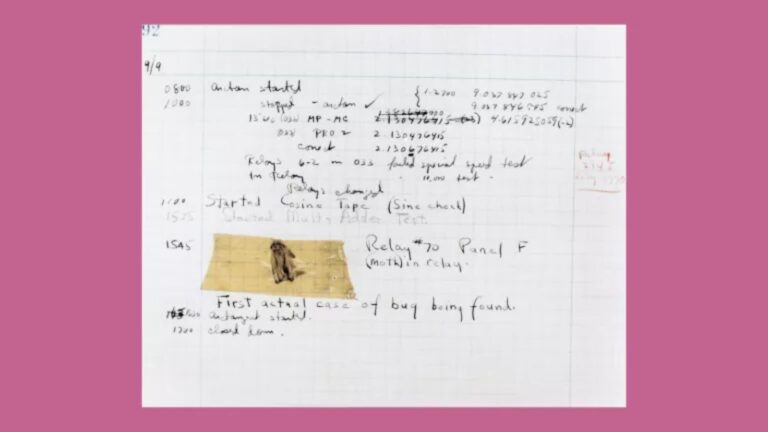 92
9/9
0800 antan started { 1.2700 9.037 847 025
1000 stopped - antan ✓ 9.037 846 995 correct
13"uc (032) MP - MC 2.130476415 (-3) 4.615925059(-2)
033 PRO 2 2.130476415
correct 2.130676415
Relays 6-2 in 033 failed special speed test
In Relay " 11.000 test "
Relays changed
1100 Started Cosine Tape (Sine check)
1525 Started Mult + Adder Test.
1545 Relay #70 Panel F
(moth) in relay.
First actual case of bug being found.
antangent started.
1700 closed down.